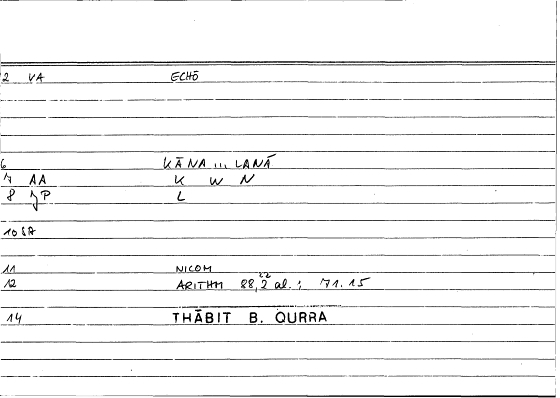 2 VA ECHŌ
6 KĀNA ... LANĀ
7 AA K W N
8 P L
10 SA
11 NICOM
12 ARITHM 88, 2 al.; 71.15
14 THĀBIT B. QURRA